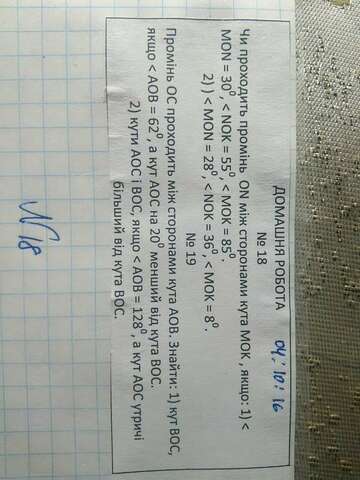 ДОМАШНЯ РОБОТА 04.10.16
№ 18
Чи проходить промінь ON між сторонами кута MOK , якщо: 1) <
MON = 30⁰, < NOK = 55⁰, < MOK = 85⁰.
2) ) < MON = 28⁰, < NOK = 36⁰, < MOK = 8⁰.
№ 19
Промінь ОС проходить між сторонами кута АОВ. Знайти: 1) кут ВОС,
якщо < АОВ = 62⁰, а кут АОС на 20⁰ менший від кута ВОС.
2) кути АОС і ВОС, якщо < АОВ = 128⁰, а кут АОС утричі
більший від кута ВОС.
№18